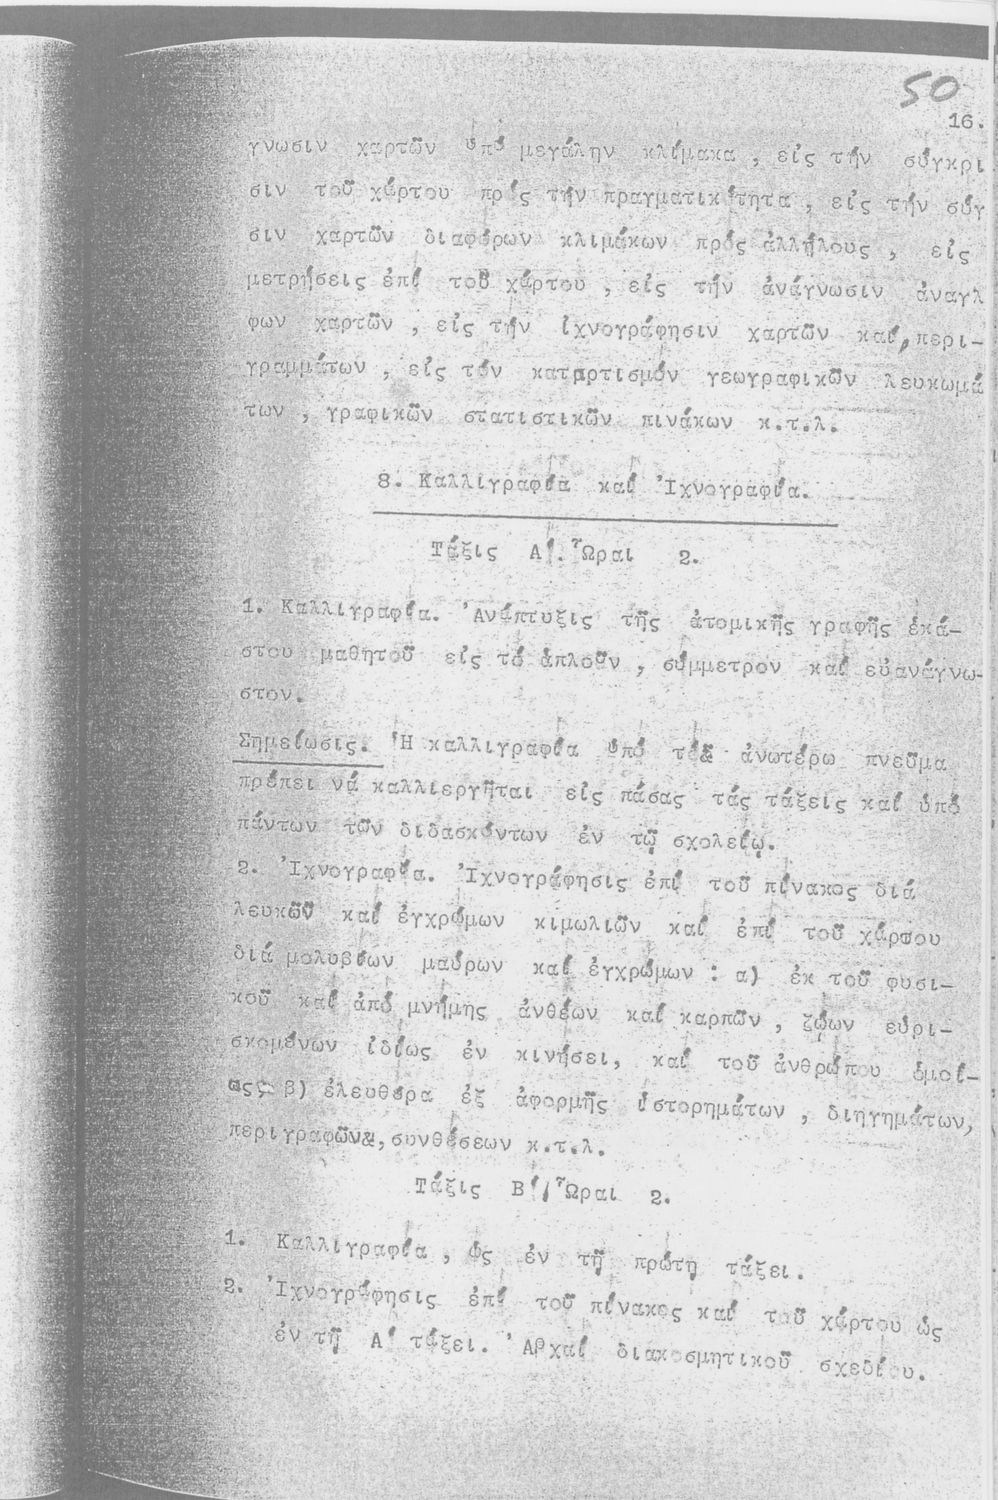 50
16.
γνωσιν χαρτῶν ὑπό μεγάλην κλίμακα , εἰς τήν σύγκρι
σιν τοῦ χάρτου πρός τήν πραγματικότητα , εἰς τήν σύγ
σιν χαρτῶν διαφόρων κλιμάκων πρός ἀλλήλους , εἰς
μετρήσεις ἐπί τοῦ χάρτου , εἰς τήν ἀνάγνωσιν ἀναγλ
φων χαρτῶν , εἰς τήν ἰχνογράφησιν χαρτῶν καί, περι-
γραμμάτων , εἰς τόν καταρτισμόν γεωγραφικῶν λευκωμά
των , γραφικῶν στατιστικῶν πινάκων κ.τ.λ.
8. Καλλιγραφία καί Ἰχνογραφία.
Τάξις Α΄. Ὧραι 2.
1. Καλλιγραφία. Ἀνάπτυξις τῆς ἀτομικῆς γραφῆς ἑκά-
στου μαθητοῦ εἰς τό ἁπλοῦν , σύμμετρον καί εὐανάγνω-
στον.
Σημείωσις. Ἡ καλλιγραφία ὑπό τό ἀνωτέρω πνεῦμα
πρέπει νά καλλιεργῆται εἰς πάσας τάς τάξεις καί ὑπό
πάντων τῶν διδασκόντων ἐν τῷ σχολείῳ.
2. Ἰχνογραφία. Ἰχνογράφησις ἐπί τοῦ πίνακος διά
λευκῶν καί ἐγχρώμων κιμωλιῶν καί ἐπί τοῦ χάρτου
διά μολυβίων μαύρων καί ἐγχρώμων : α) ἐκ τοῦ φυσι-
κοῦ καί ἀπό μνήμης ἀνθέων καί καρπῶν , ζῴων εὑρι-
σκομένων ἰδίως ἐν κινήσει, καί τοῦ ἀνθρώπου ὁμοί-
ως β) ἐλευθέρα ἐξ ἀφορμῆς ἱστορημάτων , διηγημάτων,
περιγραφῶν, συνθέσεων κ.τ.λ.
Τάξις Β΄ Ὧραι 2.
1. Καλλιγραφία , ὡς ἐν τῇ πρώτῃ τάξει.
2. Ἰχνογράφησις ἐπί τοῦ πίνακος καί τοῦ χάρτου ὡς
ἐν τῇ Α΄ τάξει. Ἀρχαί διακοσμητικοῦ σχεδίου.